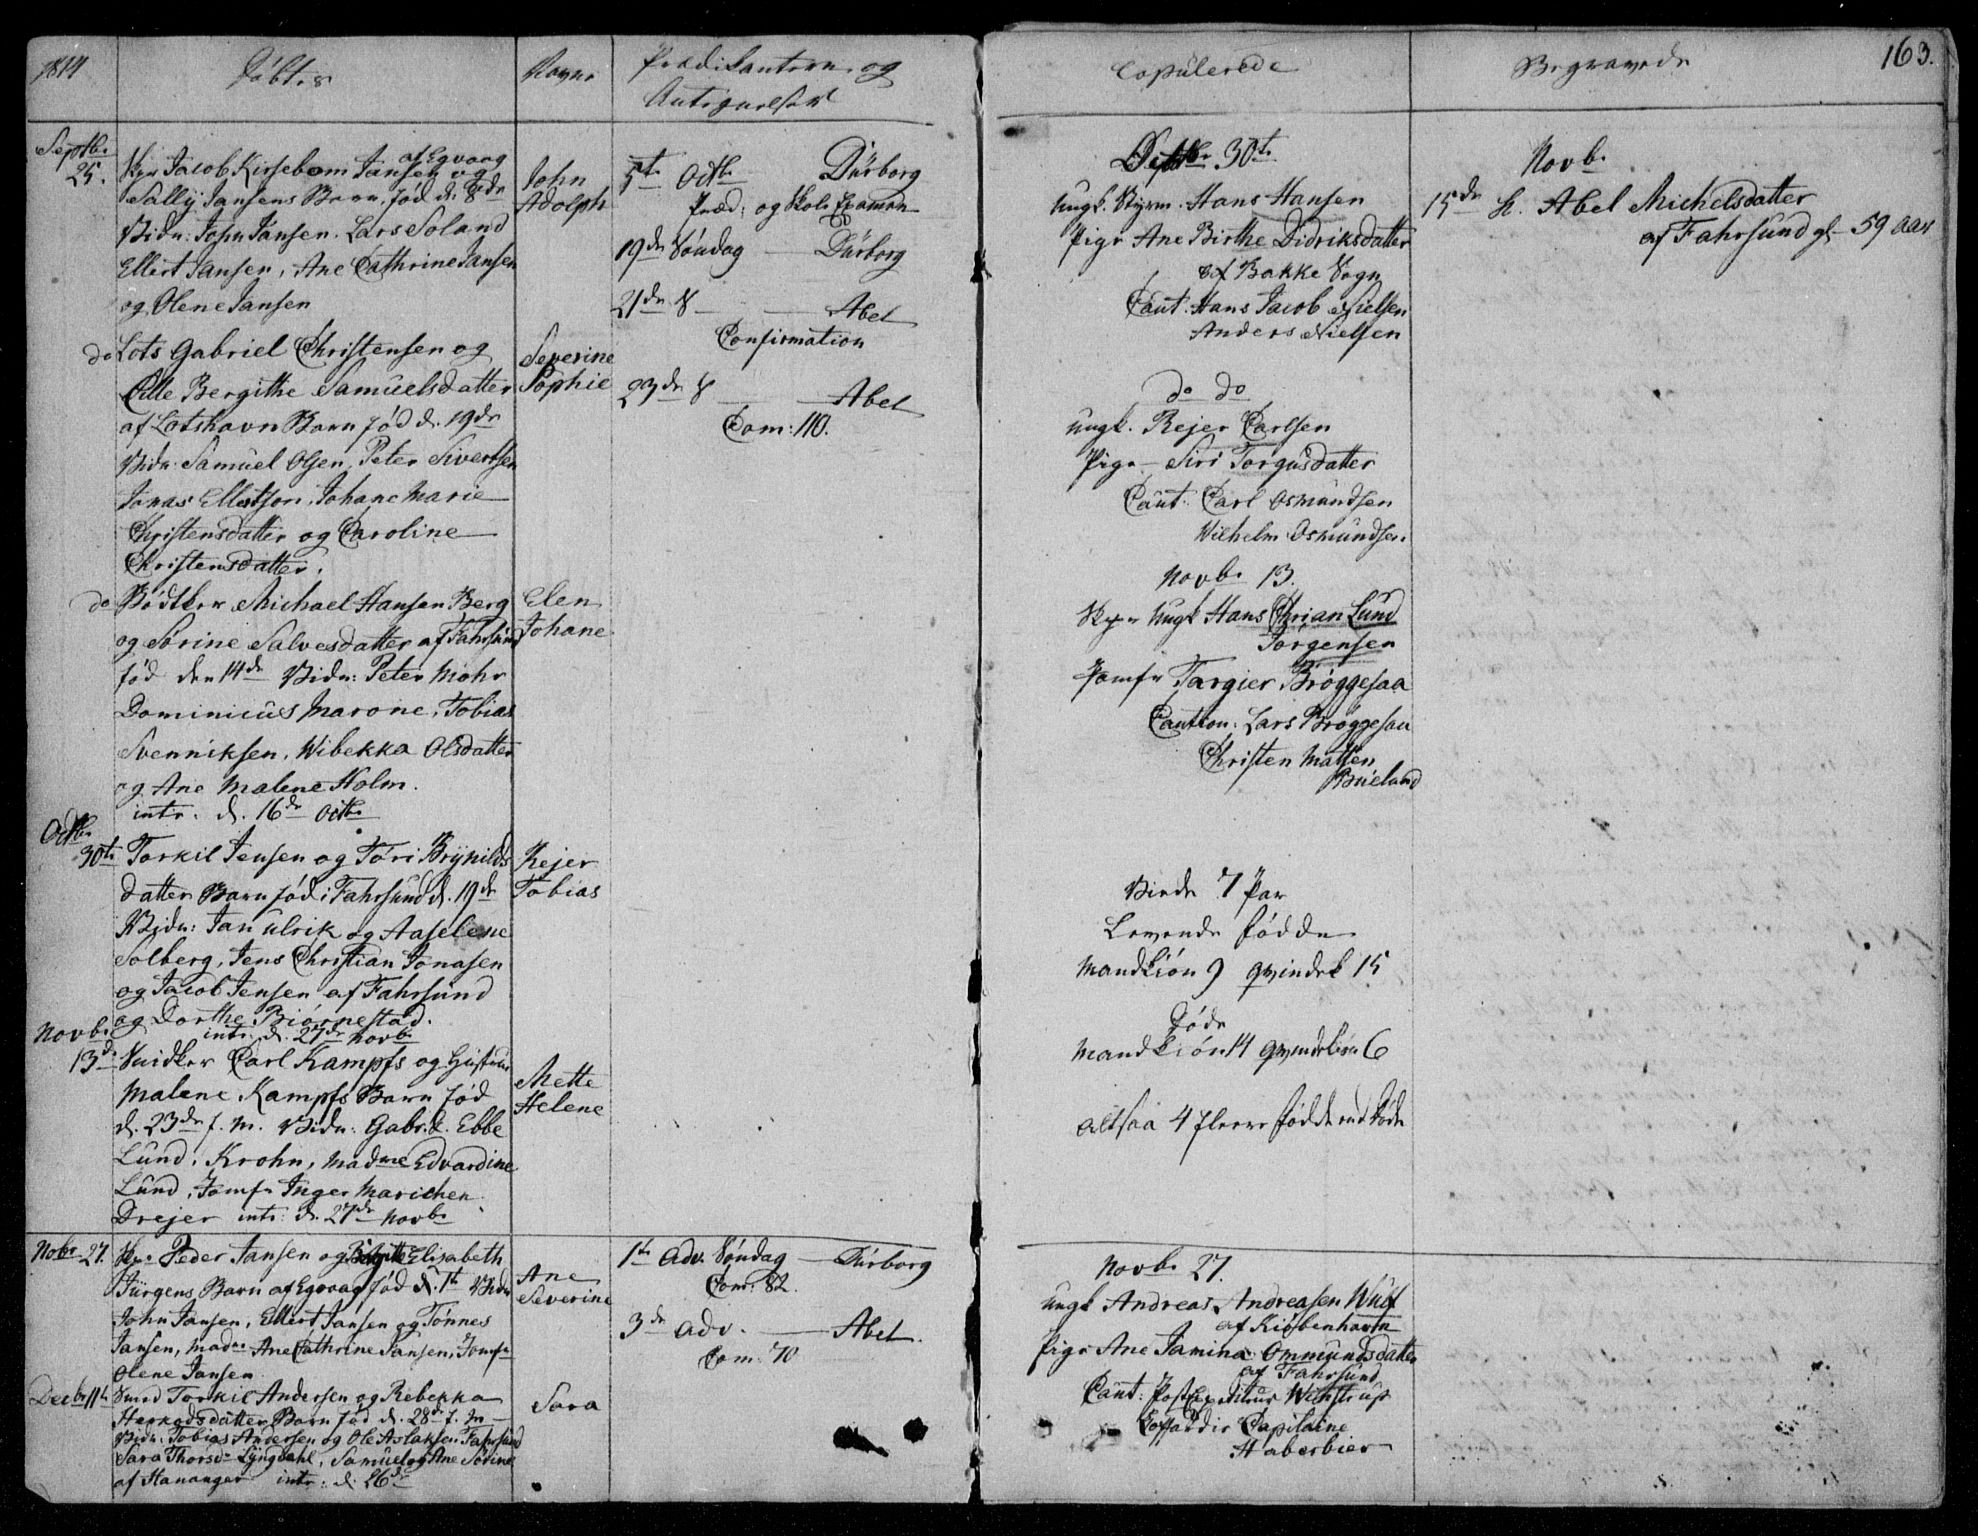 1814
Døbte
Navne
Prædikanterne og
Copulerede
Begravede
163.
Septbr
25.
Jacob Kirsebom Jansen og
af Egvaag
Sally Jansens Barn, fød d. 8de
Vidn: John Jansen. Lars Soland
Ellert Jansen, Ane Cathrine Jansen
og Olene Jansen
John
Adolph
do
Lots Gabriel Christensen og
Bergithe Samuelsdatter
af Lotshavn Barn fød d. 19de
Vidn: Samuel Olsen, Peter Sivertsen
Jonas Ellertson, Johane Marie
Christensdatter og Caroline
Christensdatter.
Severine
Sophie
do
Bødker Michael Hansen Berg
og Sørine Salvesdatter af Fahrsund
fød den 14de Vidn: Peter Mohr
Dominicus Marone, Tobias
Svenniksen, Wibekka Olsdatter
og Ane Malene Holm.
intr. d. 16de Octbr
Elen
Johane
Octbr
30te
Torkil Jensen og Tøri Brynilds
datter Barn fød i Fahrsund d. 19de
Vidn: Jan Ulrik og Aaselene
Solberg, Jens Christian Jonasen
og Jacob Jensen af Fahrsund
og Dorthe Biørnestad.
intr. d. 27de Novbr
Rejer
Tobias
Novbr
13de
Snidker Carl Kampfs og
Malene Kampfs Barn fød
d. 23de f. M. Vidn: Gabr. Ebbe
Lund, Krohn, Madme Edvardine
Lund, Jomfr Inger Marichen
Drejer intr: d. 27de Novbr
Mette
Helene
Nobr 27.
Peder Jansen og Elisabeth
Jürgens Barn af Egvaag fød d. 1te Vidn
John Jansen, Ellert Jansen og Tønnes
Jansen, Madme Ane Cathrine Jansen, Jomfr
Olene Jansen
Ane
Severine
Decbr 11te
Torkil Andersen og Rebekka
Barn fød d. 28de f. M
Vidn: Tobias Andersen og Ole Aslaksen Fahrsund
Sara Thorsd Lyngdahl, Samuel og Ane Sørine
af Hananger intr: d. 26de
Sara
5te Octbr Dürborg
Præd: og Skole Examen
19de Søndag — Dürborg
21de S — Abel
Confirmation
23de S — Abel
Com: 110.
1te Adv. Søndag — Dürborg
Com: 82.
3de Adv. — Abel.
Com: 70
30te
Ungk. Styrm. Hans Hansen
Pige Ane Birthe Didriksdatter
af Bakke Sogn
Caut: Hans Jacob Nielsen
Anders Nielsen
do do
Ungk. Rejer Carlsen
Pige — Siri Torgusdatter
Caut: Carl Osmundsen
Wilhelm Osmundsen
Novbr 13.
Ungk Hans Chrian Lund
Jørgensen
Jomfr Targier Brøggesaa
Caution: Lars Brøggesaa
Christen Matsen
Bueland
Viede 7 Par
Levende fødde
Mandkiön 9 qvindek 15
Døde
Mandkiön 14 qvindekiön 6
altsaa 4 fleere fødde end døde
Novbr 27.
Ungk Andreas Andreasen Wulf
af Kiøbenhavn
Pige Ane Jamina Ommundsdatter
af Fahrsund
Caut: Postexpediteur Wenstrup
Capitaine
Haberbier
Novbr
15de Abel Michelsdatter
af Fahrsund gl. 59 Aar